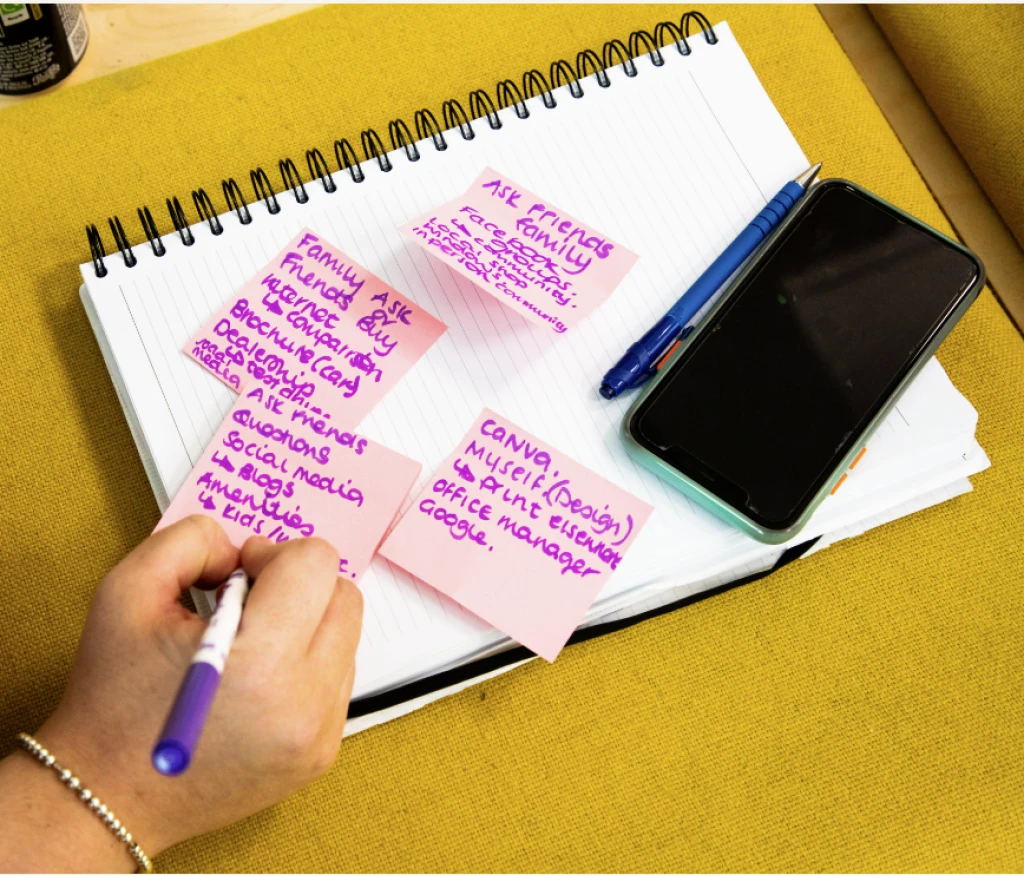 ASK Friends
Family
Facebook
↳ comm. groups.
Local community.
in person community
Family
Friends ASK
or
Internet Buy
↳ Comparrison
Brochure (car)
Dealership
↳ test
media
ASK friends
Questions
Social media
↳ Blogs
Amenities
↳ kids/
Canva.
Myself. (Design)
↳ print elsewhere
OFFICE manager
Google.